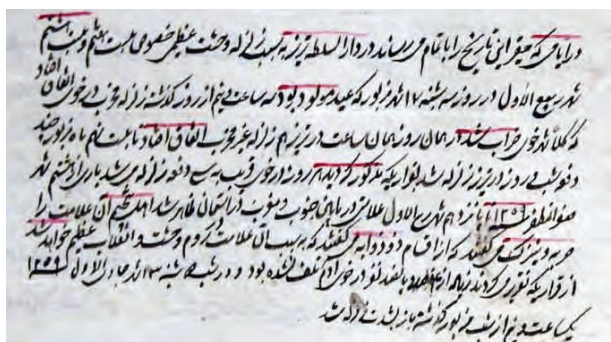 در ایامی که حقیر این تاریخ را باتمام می رساند در دار السلطنه تبریز به سبب زلزله وحشت عظیمی خصوص بیست هفتم و بیست هشتم
شهر ربیع الاول در روز سه شنبه ۱۷ شهر مزبور که عید مولود بود سه ساعت و نیم از روز گذشته زلزله مخرب در خوی اتفاق افتاد
که کلا شهر خوی خراب شد در همان روز همان ساعت در تبریز هم زلزله غیر مخرب اتفاق افتاد تا بیست نهم ماه مزبور چند
دفعه شب و روز در تبریز زلزله شد بقراریکه مذکور کردید هر روزه در خوی قریب به سی دفعه زلزله می شد باری از هشتم شهر
صفر المظفر ۱۲۵۹ تا پانزدهم شهر ربیع الاول علامتی در مابین جنوب و مغرب در آسمان ظاهر شد اهل تنجیم آن علامت را
حربه و نیزک می گفتند که از اقسام ذو ذوابه می گفتند که به سبب آن علامت در روم وحشت و انقلاب عظیم خواهد شد
از قراریکه تقریر کردید زیاده از بانصد نفر در خوی آدم تلف شده بود و در شب شنبه ۳ شهر جمادی الاول ۱۲۵۹
یکساعت و نیم از شب مزبور گذشته باز بشدت زلزله شد